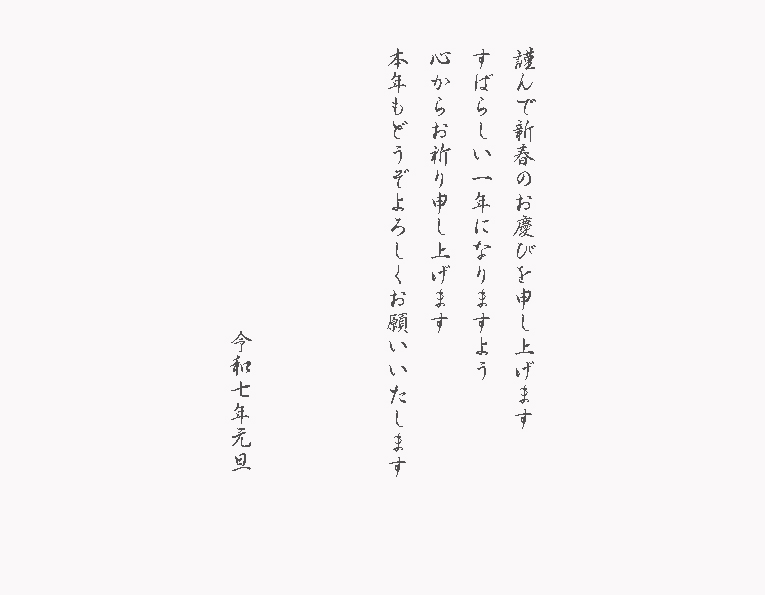 謹んで新春のお慶びを申し上げます
すばらしい一年になりますよう
心からお祈り申し上げます
本年もどうぞよろしくお願いいたします
令和七年元旦